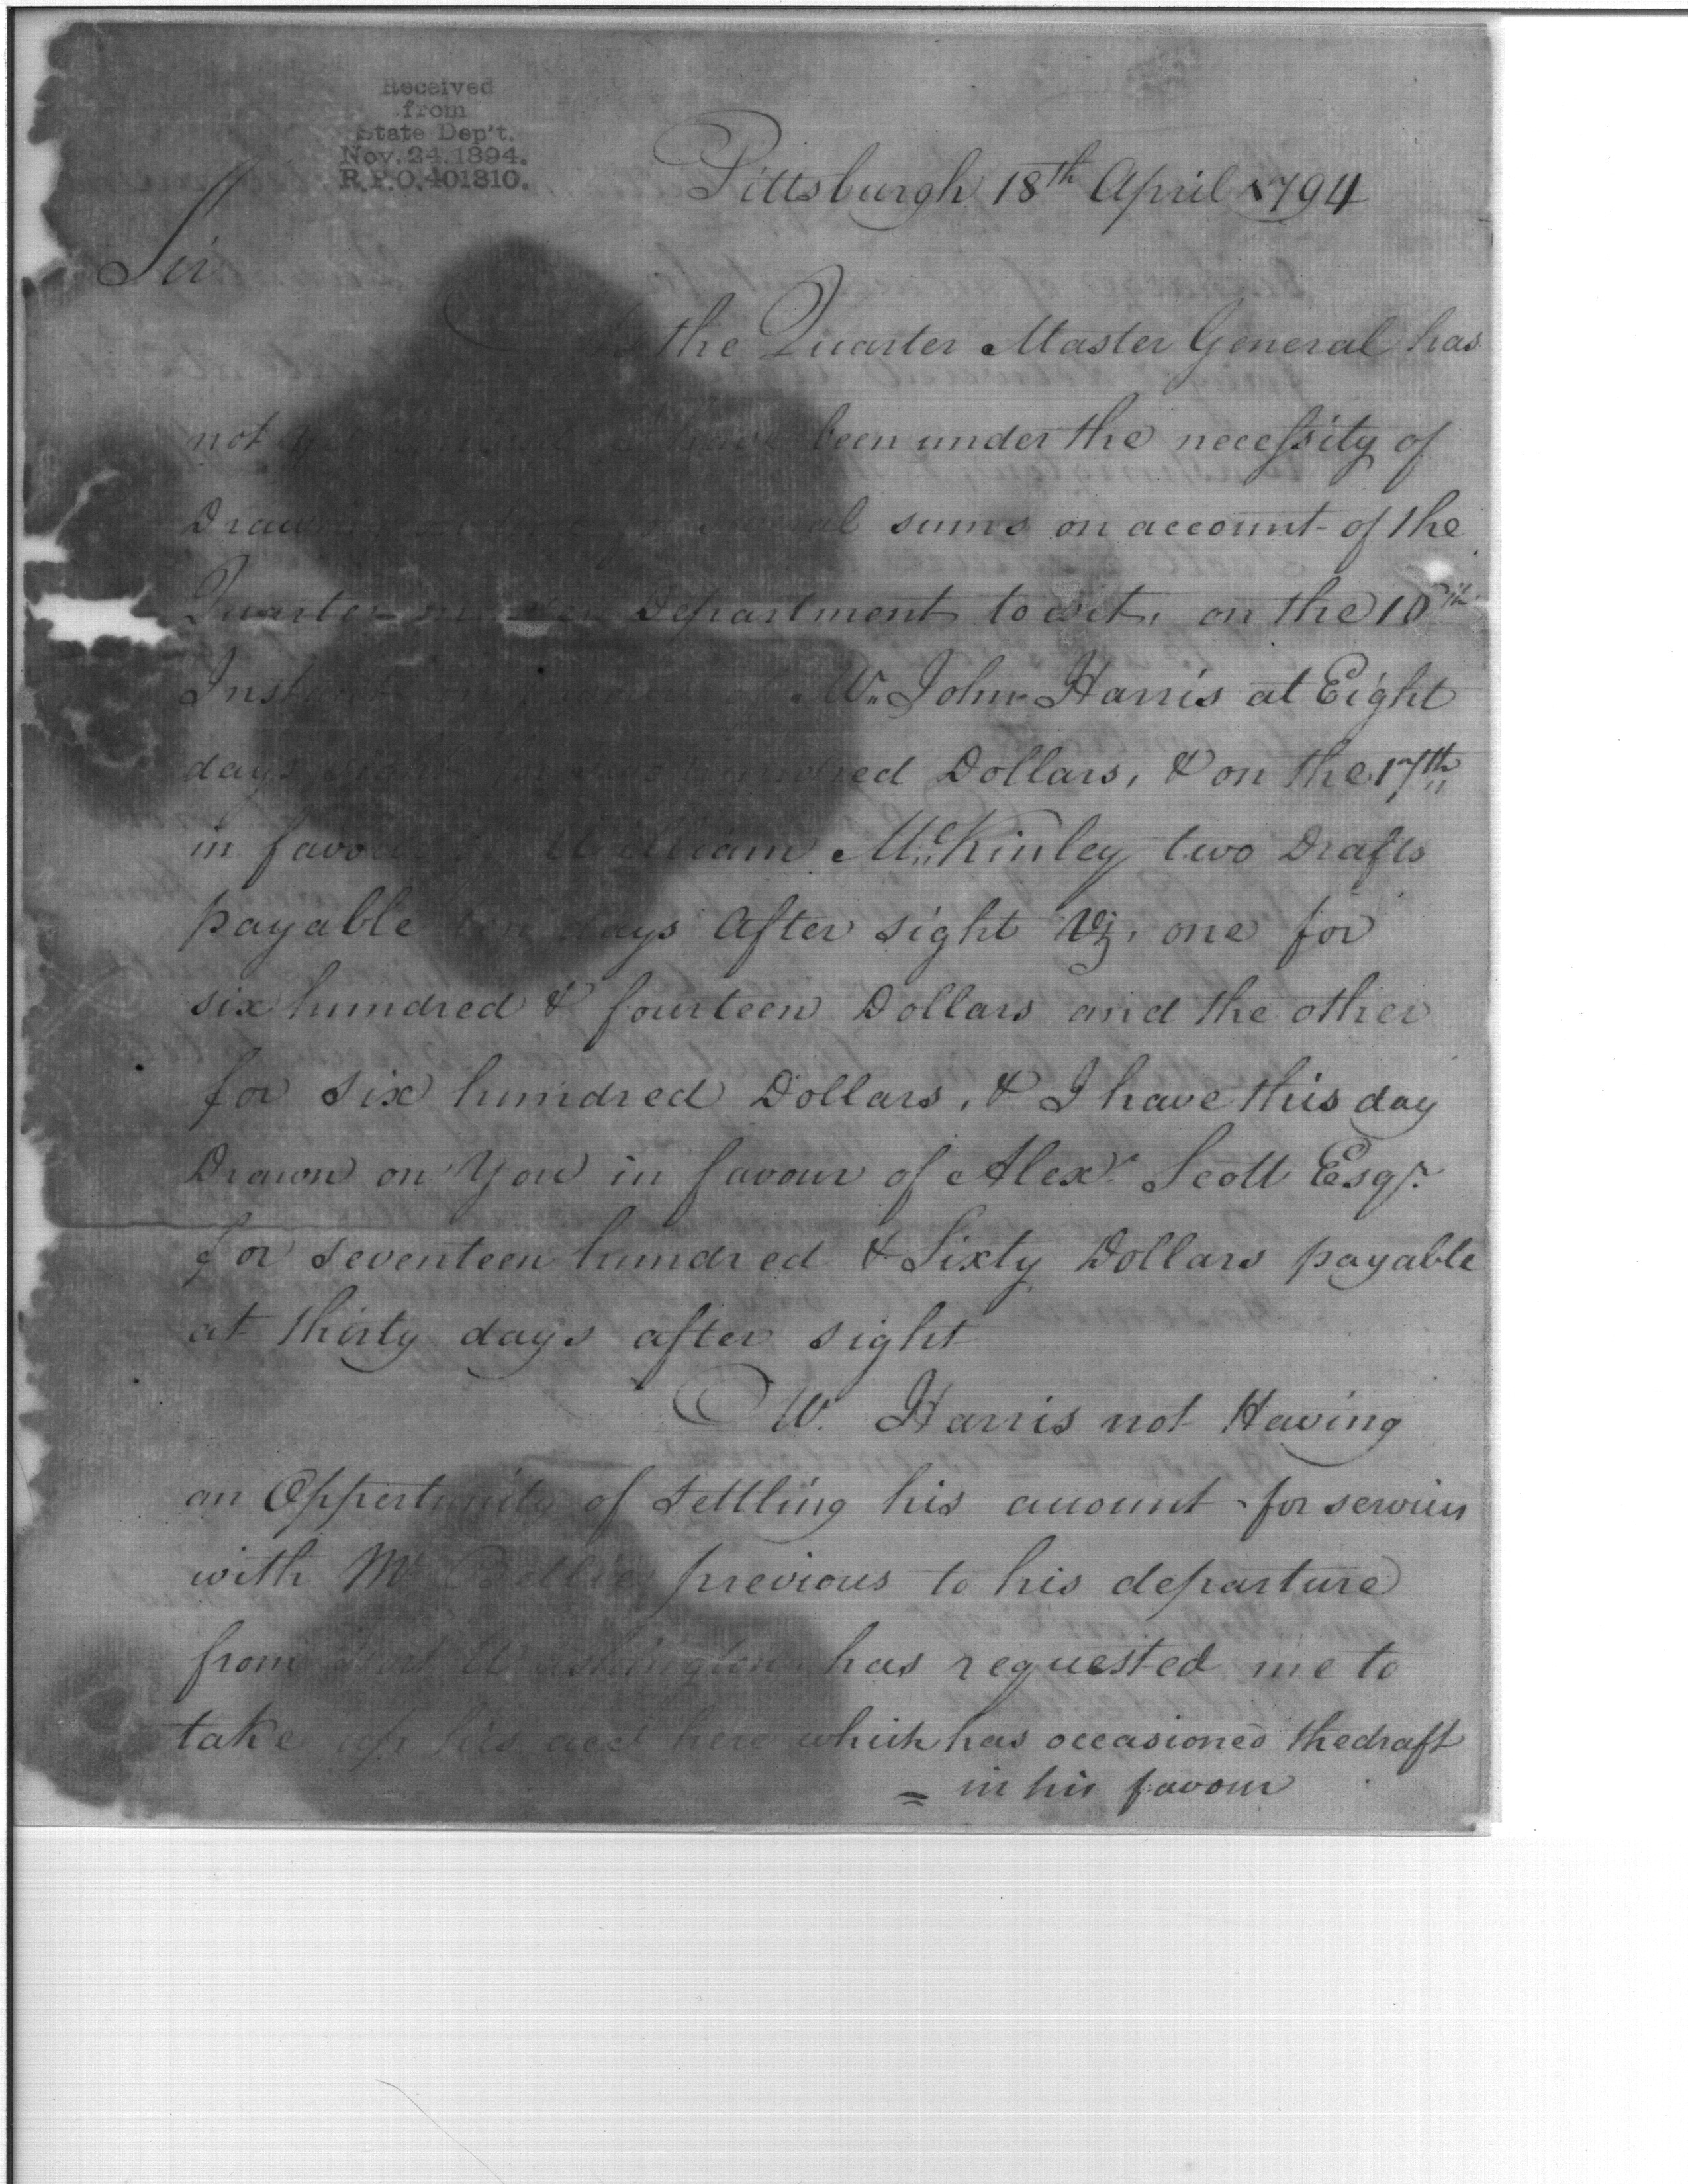 Received
from
State Dep't.
Nov. 24. 1894.
R.P.O. 401310.
Pittsburgh 18th April 1794
Sir
As the Quarter Master General has
not yet arrived I have been under the necessity of
Drawing on You for several sums on account of the
Quarter master Department to wit, on the 10th
Instant in favour of Mr. John Harris at Eight
days sight hundred Dollars, & on the 17th
in favour of William McKinley two Drafts
payable ten days After sight Viz, one for
six hundred & fourteen Dollars and the other
for six hundred Dollars, & I have this day
Drawn on You in favour of Alexr. Scott Esqr.
for seventeen hundred & Sixty Dollars payable
at thirty days after sight
Mr. Harris not Having
an Oppertunity of Settling his account for services
with Mr Bellie previous to his departure
from Fort Washington has requested me to
take up his acct here which has occasioned the draft
= in his favour